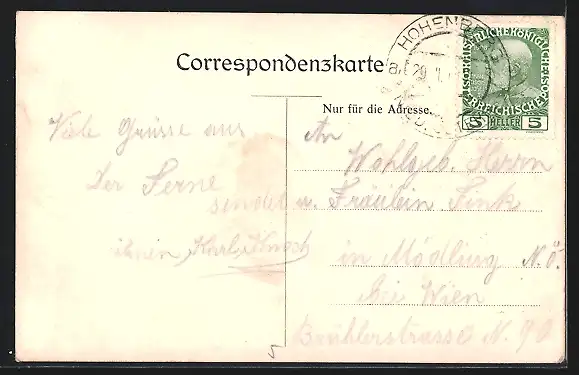 Correspondenzkarte
Nur für die Adresse.
HOHENB
29
KAISERLICHEKÖNIGLICHE
ÖSTERREICHISCHE POST
5 HELLER 5
Viele Grüsse aus
Der Ferne
sendet
ihnen Karl
An
Wohlgeb. Herrn
u. Fräulein Fink
in Mödling N.Ö.
bei Wien
Brühlerstrasse N. 90